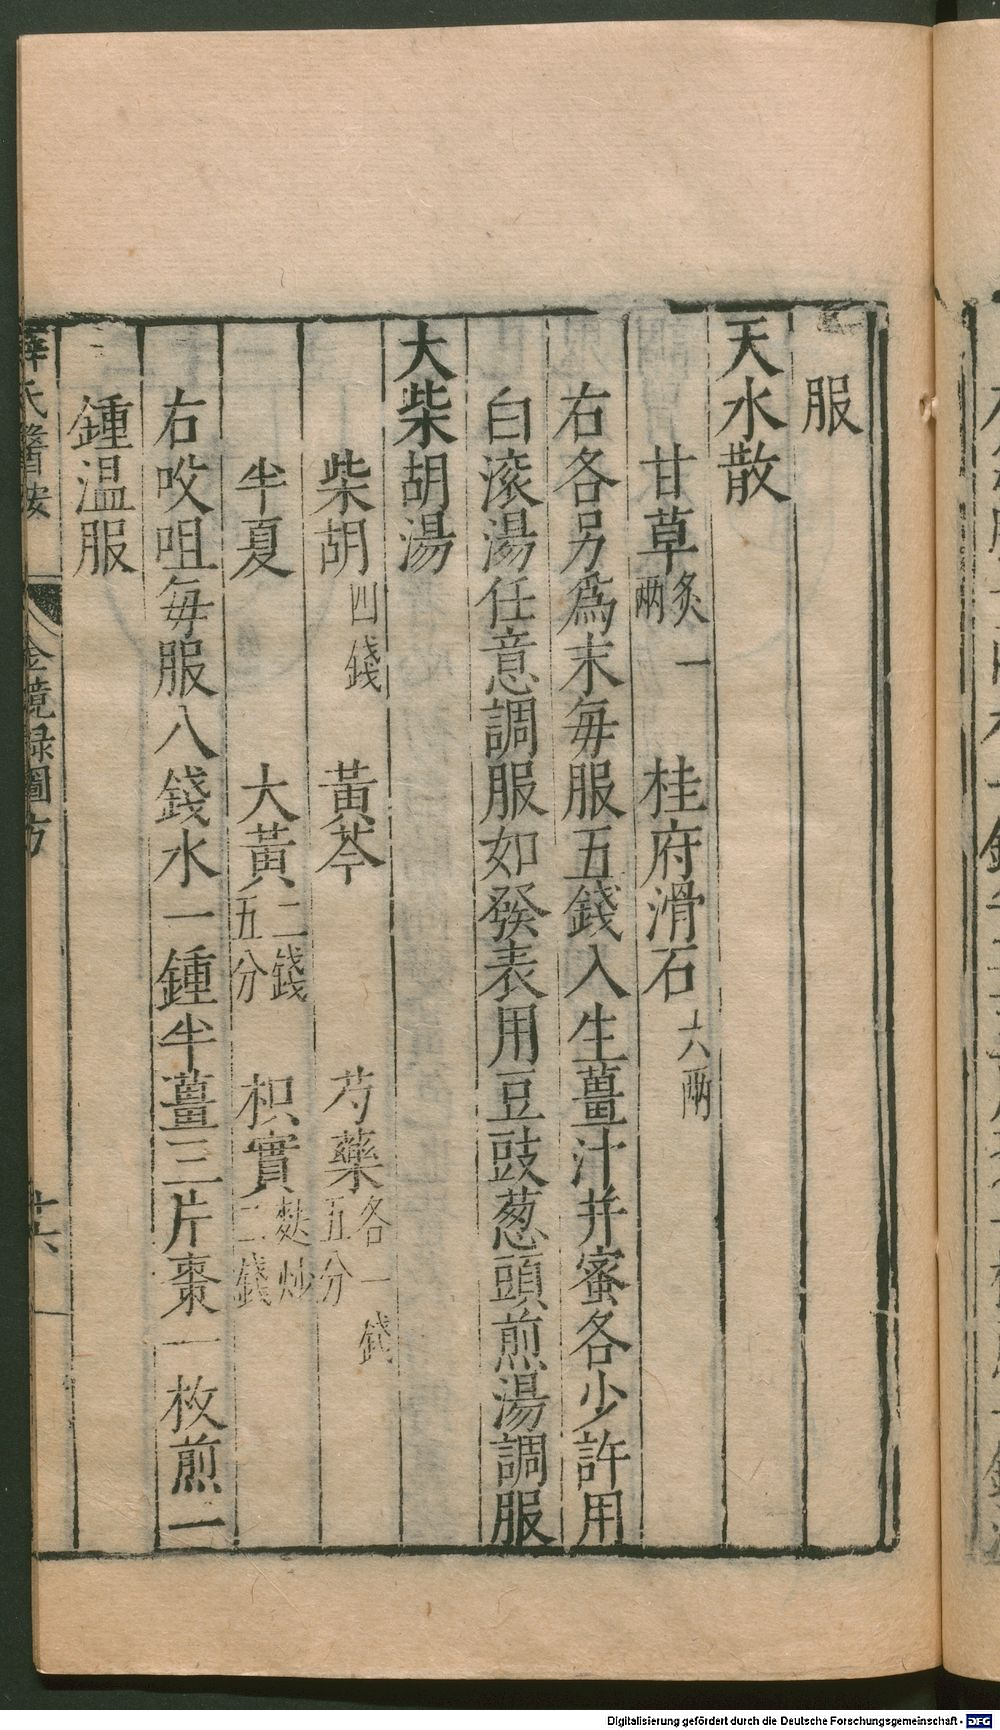 服
天水散
甘草炙一兩 桂府滑石六兩
右各另爲末每服五錢入生薑汁并蜜各少許用
白滚湯任意調服如發表用豆豉葱頭煎湯調服
大柴胡湯
柴胡四錢 黃芩 芍藥各一錢五分
半夏 大黃二錢五分 枳實麩炒二錢
右㕮咀每服八錢水一鍾半薑三片棗一枚煎一
鍾温服
薛氏醫按 金鏡録圖方
Digitalisierung gefördert durch die Deutsche Forschungsgemeinschaft - DFG